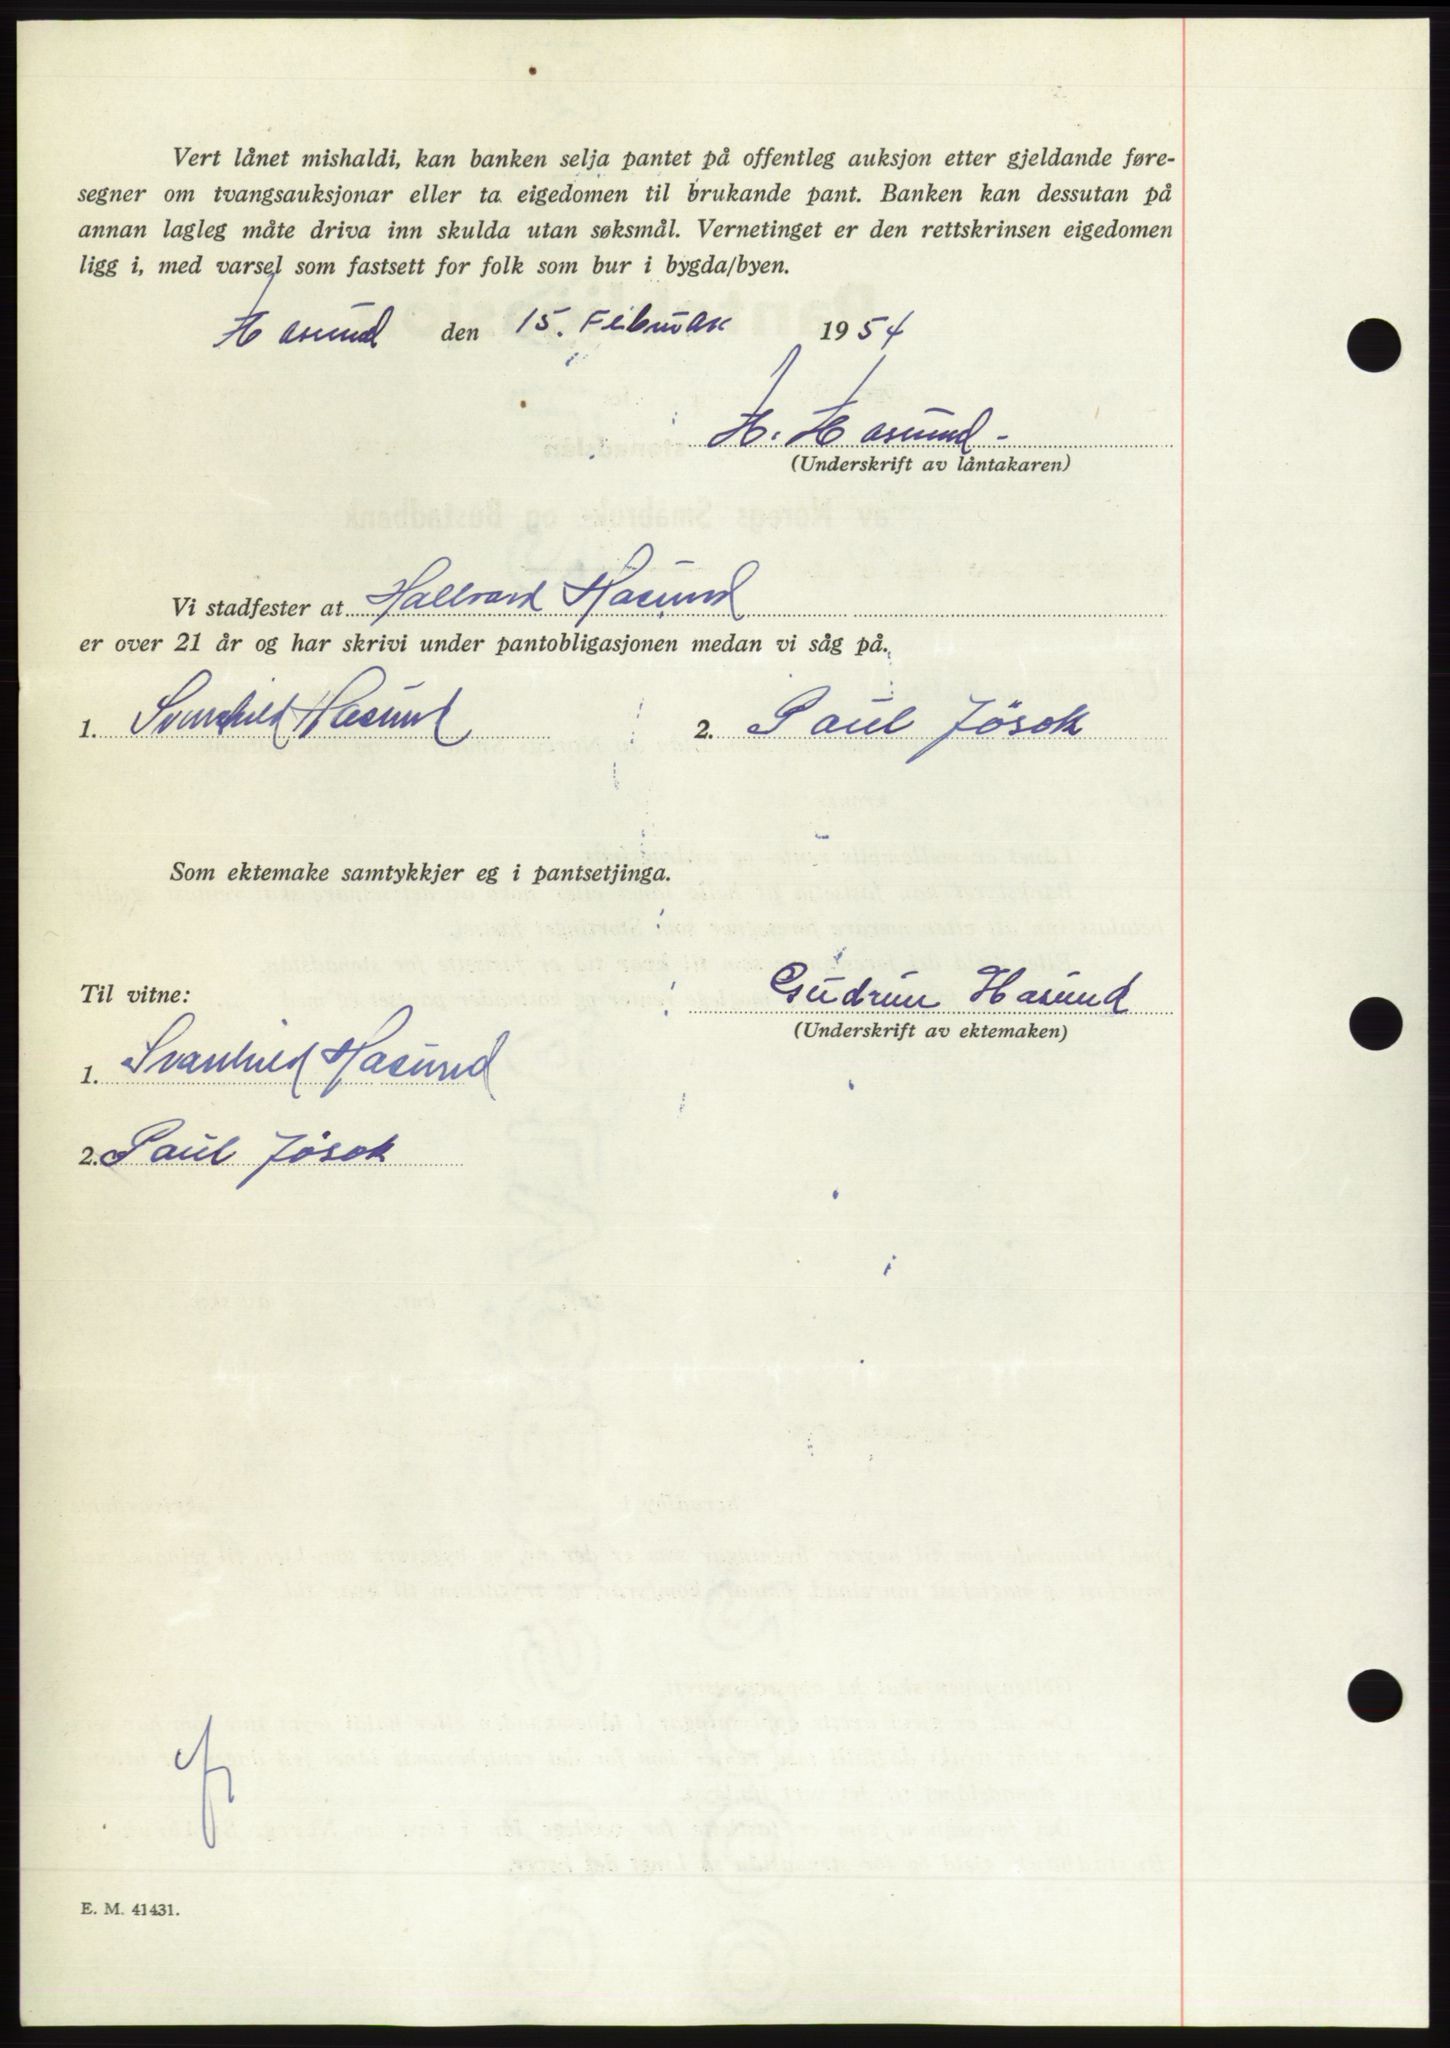 Vert lånet mishaldi, kan banken selja pantet på offentleg auksjon etter gjeldande føre-
segner om tvangsauksjonar eller ta eigedomen til brukande pant. Banken kan dessutan på
annan lagleg måte driva inn skulda utan søksmål. Vernetinget er den rettskrinsen eigedomen
ligg i, med varsel som fastsett for folk som bur i bygda/byen.
Hasund den 15. Februar 1954
H. Hasund -
(Underskrift av låntakaren)
Vi stadfester at Hallvard Hasund
er over 21 år og har skrivi under pantobligasjonen medan vi såg på.
1. Svanhild Hasund 2. Paul Jösok
Som ektemake samtykkjer eg i pantsetjinga.
Til vitne:
Gudrun Hasund
(Underskrift av ektemaken)
1. Svanhild Hasund
2. Paul Jösok
E. M. 41431.